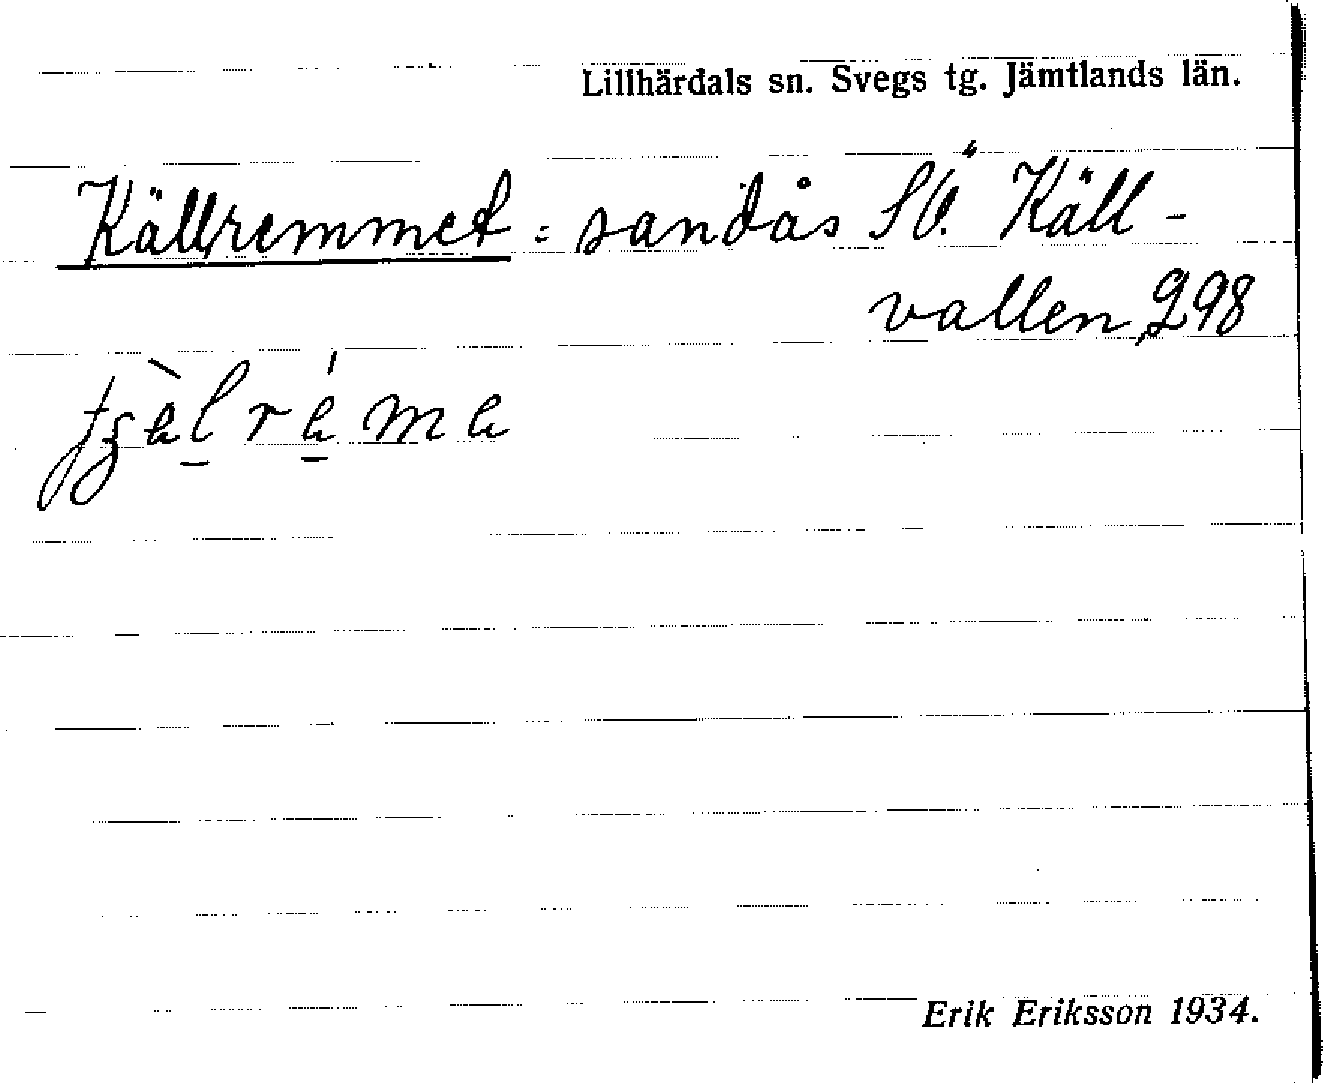 Lillhärdals sn. Svegs tg. Jämtlands län.
Källremmet = sandås SÖ. Käll-
vallen, 298
Erik Eriksson 1934.